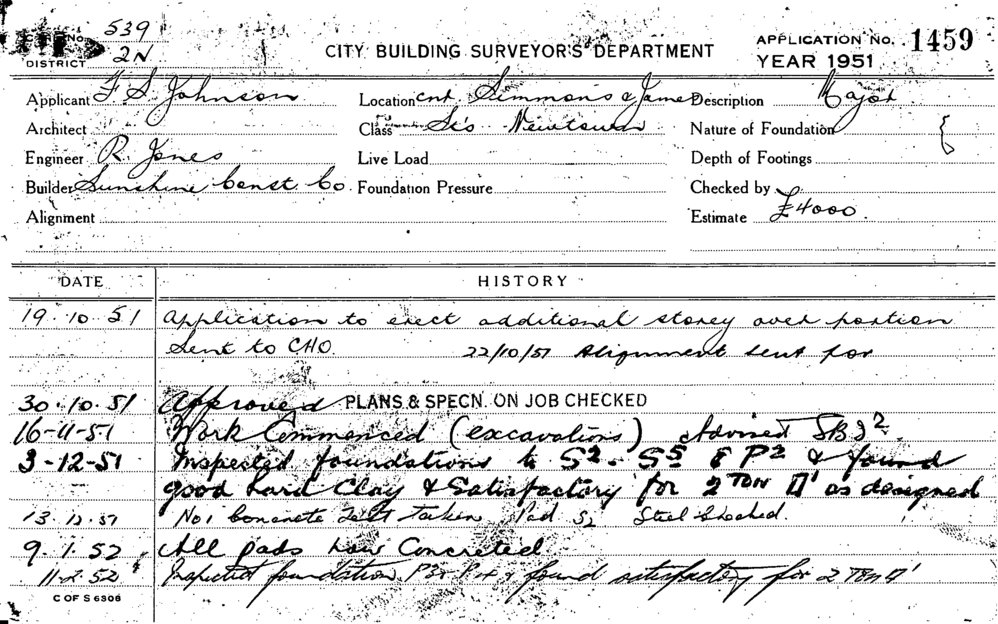 539
No.
2N
DISTRICT
CITY BUILDING SURVEYOR'S DEPARTMENT
APPLICATION No. 1459
YEAR 1951
Applicant F S Johnson
Location cnr Simmons & James Description Major
Architect
Class Sts Newtown Nature of Foundation
Engineer R. Jones Live Load Depth of Footings
Builder Sunshine Const. Co. Foundation Pressure Checked by
Alignment Estimate £4000.
DATE HISTORY
19.10.51 Application to erect additional storey over portion
Sent to CHO. 22/10/51 Alignment sent for
30.10.51 Approved PLANS & SPECN. ON JOB CHECKED
16-11-51 Work Commenced (excavations) Advised
3-12-51 Inspected foundations to S2. S5 & P2 & found
good hard Clay & Satisfactory for 2 TON □' as designed
13.12.51 No 1 Concrete Test taken Pad S2 Steel Checked.
9.1.52 All pads now Concreted
11-2-52 Inspected foundation found satisfactory for 2 Ton □'
C OF S 6306